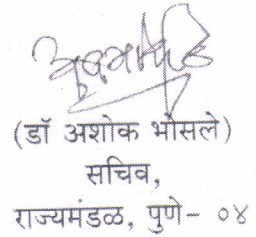 (डॉ अशोक भोसले)
सचिव,
राज्यमंडळ, पुणे- ०४